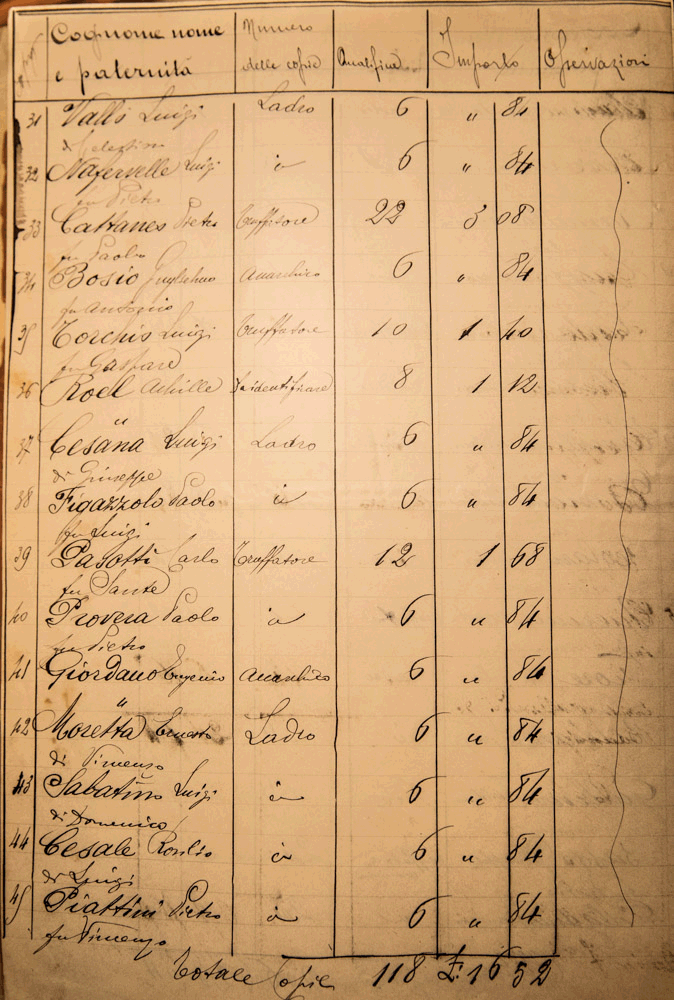 Cognome nome e paternità Numero delle copie Qualifica Importo Osservazioni
31 Valli Luigi Ladro 6 " 84
di Celestino
32 Luigi id 6 " 84
fu Pietro
33 Cattaneo Pietro Truffatore 22 3 08
fu Paolo
34 Bosio Guglielmo Anarchico 6 " 84
fu Antonio
35 Torchis Luigi Truffatore 10 1 40
fu Gaspare
36 Roel Achille Da identificare 8 1 12
"
37 Cesana Luigi Ladro 6 " 84
di Giuseppe
38 Figazzolo Paolo id 6 " 84
fu Luigi
39 Pasotti Carlo Truffatore 12 1 68
fu Sante
40 Provera Paolo id 6 " 84
fu Pietro
41 Giordano Eugenio Anarchico 6 " 84
"
42 Moretta Ernesto Ladro 6 " 84
di Vincenzo
43 Sabatino Luigi id 6 " 84
di Domenico
44 Cesale id 6 " 84
di Luigi
45 Piattini Pietro id 6 " 84
fu Vincenzo
Totale Copie 118 £. 16 52